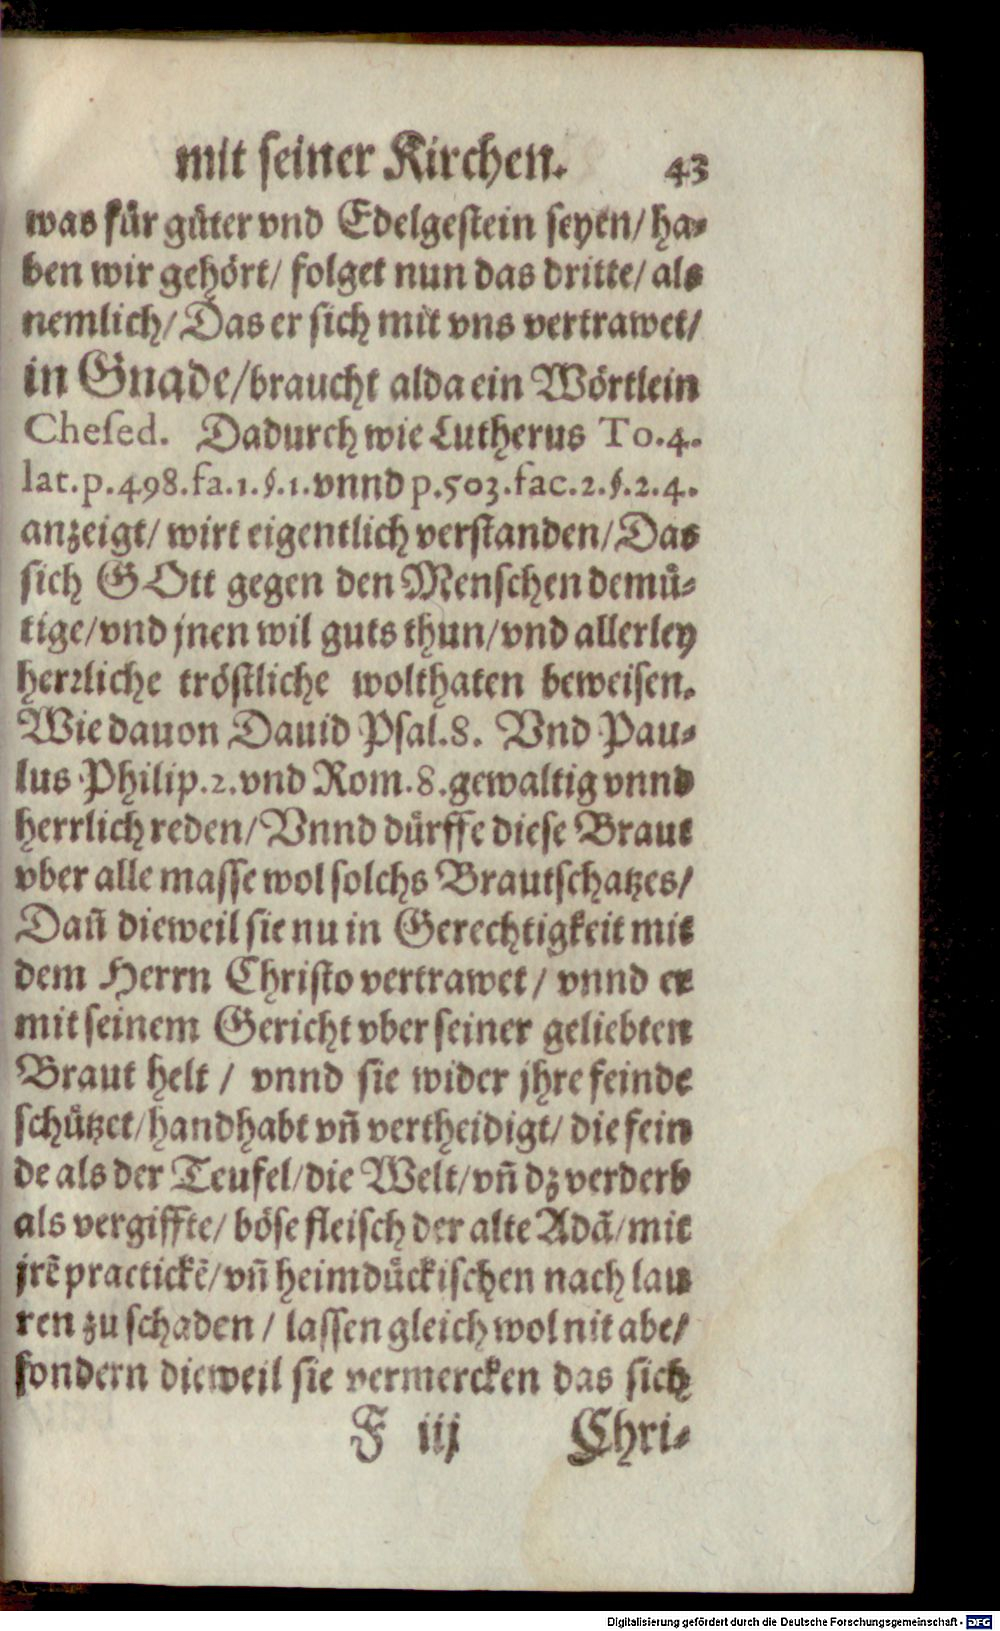 mit seiner Kirchen. 43
was für güter vnd Edelgestein seyen/ ha⸗
ben wir gehört/ folget nun das dritte/ als
nemlich/ Das er sich mit vns vertrawet/
in Gnade/braucht alda ein Wörtlein
Cheſed. Dadurch wie Lutherus To.4.
lat.p.498.fa.1.§.1.vnnd p.503.fac.2.§.2.4.
anzeigt/ wirt eigentlich verstanden/Das
sich GOtt gegen den Menschen demü⸗
tige/vnd jnen wil guts thun/vnd allerley
herꝛliche tröstliche wolthaten beweisen.
Wie dauon Dauid Psal.8. Vnd Pau⸗
lus Philip.2.vnd Rom.8.gewaltig vnnd
herrlich reden/Vnnd dürffe diese Braut
vber alle masse wol solchs Brautschatzes/
Dañ dieweil sie nu in Gerechtigkeit mit
dem Herrn Christo vertrawet/ vnnd er
mit seinem Gericht vber seiner geliebten
Braut helt / vnnd sie wider jhre feinde
schützet/handhabt vñ vertheidigt/ die fein
de als der Teufel/die Welt/vñ dz verderb
als vergiffte/ böse fleisch der alte Adã/mit
jrẽ practickẽ/vñ heimdückischen nach lau
ren zu schaden / lassen gleich wol nit abe/
sondern dieweil sie vermercken das sich
F iij Chri⸗
Digitalisierung gefördert durch die Deutsche Forschungsgemeinschaft - DFG